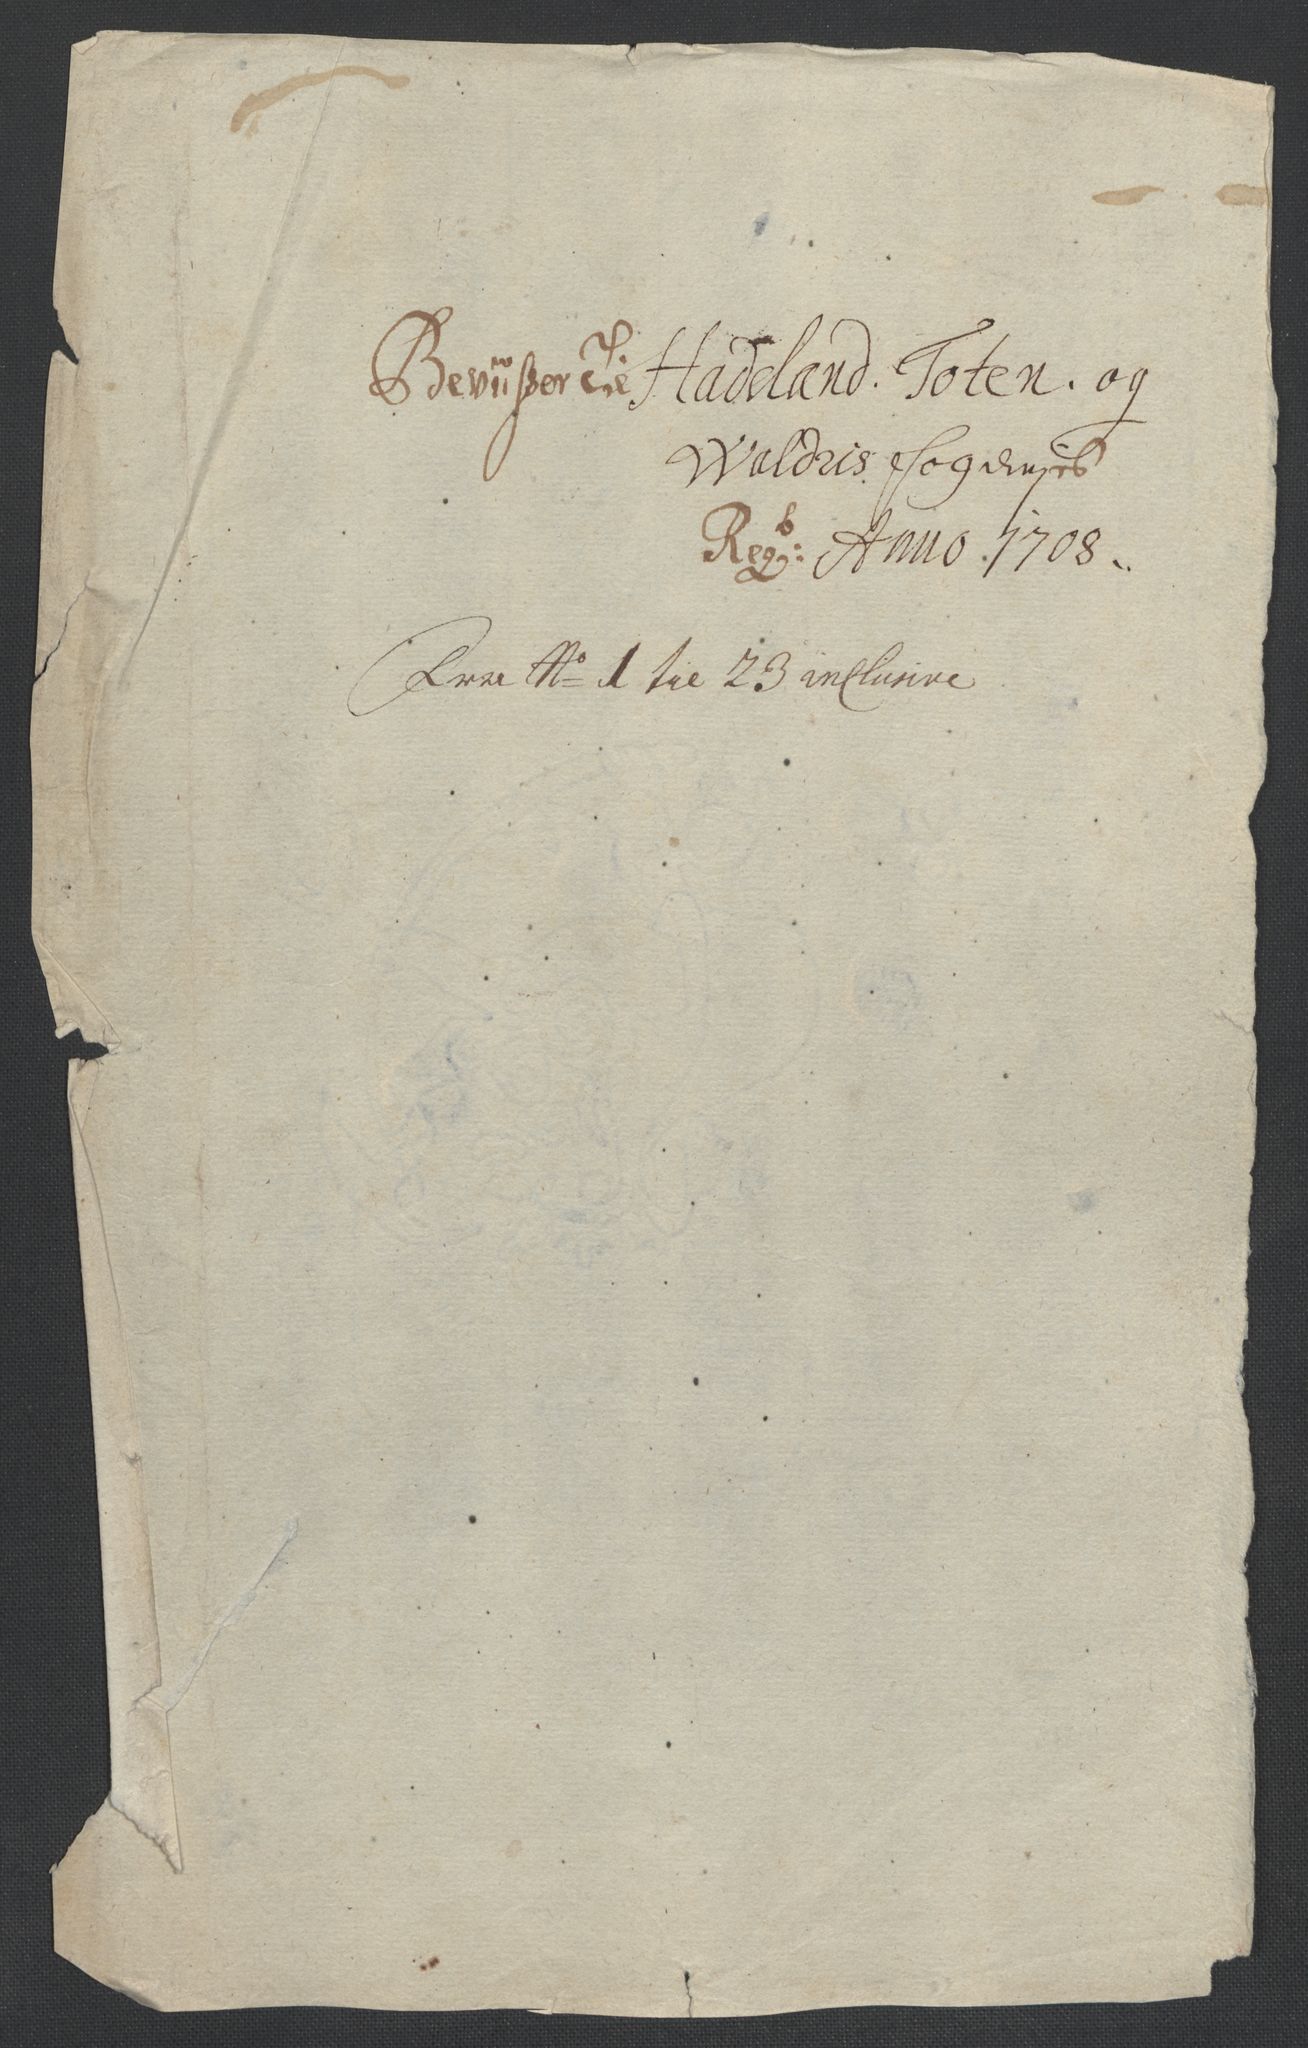 Beviißer Til Hadeland. Toten. og
Waldris fogderjes
Regb: Anno 1708.
Fra No 1 til 23 inclusive